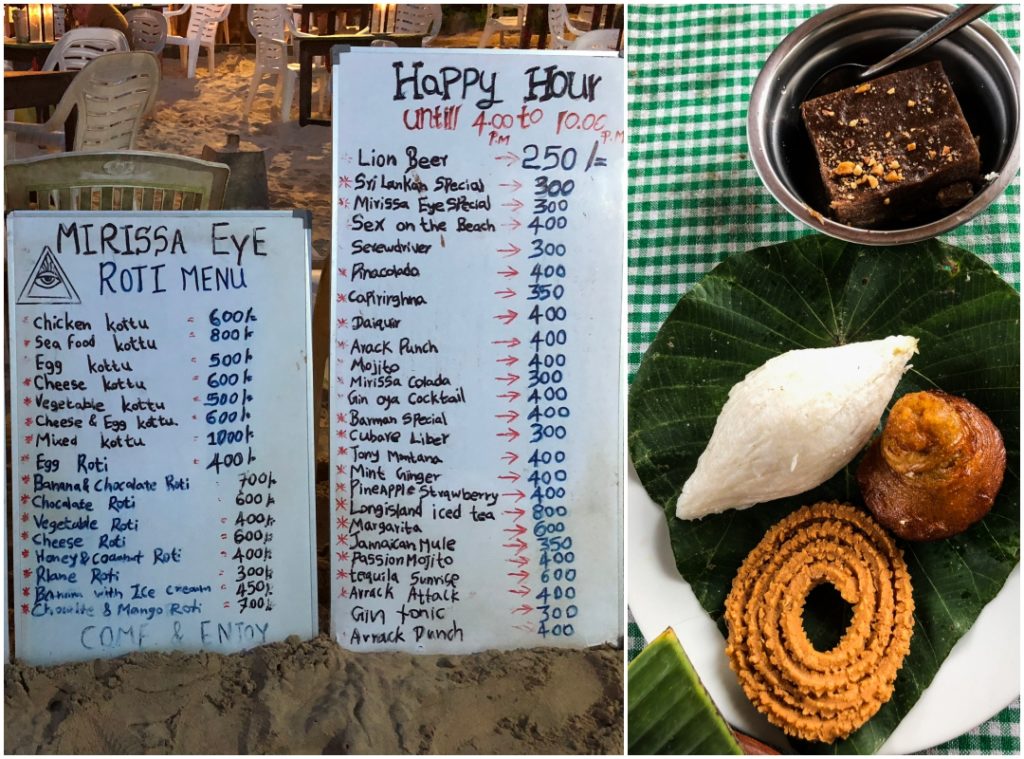 MIRISSA EyE
ROTI MENU
* Chicken kottu = 600/-
* Sea Food kottu = 800/-
Egg kottu 500/-
* Cheese kottu = 600/-
* Vegetable kottu = 500/-
* Cheese & Egg kottu. = 600/-
* Mixed kottu = 1000/-
* Egg Roti = 400/-
* Banana & Chocolate Roti = 700/-
* Chocolate Roti = 600/-
* Vegetable Roti = 400/-
* Cheese Roti = 600/-
* Honey & coconut Roti = 400/-
* Plane Roti = 300/-
* with Ice cream = 450/-
* & Mango Roti = 700/-
COME & ENJOY
Happy Hour
untill 4.00 to 10.00
P.M P.M
Lion Beer → 250/=
* Sri Lankan Special → 300
* Mirissa Eye Special → 300
Sex on the Beach → 400
Serewdriver → 300
* Pinacolada → 400
* Capirirghna → 350
* Daiquir → 400
Arack Punch → 400
Mojito → 400
Mirissa Colada → 300
Gin oya Cocktail → 400
* Barman Special → 400
* Cubare Liber → 300
* Tony Montana → 400
* Mint Ginger → 400
* Pineapple Strawberry → 400
* Longisland iced tea → 800
* Margarita → 600
* Jamaican Mule → 350
* Passion Mojito → 400
* tequila Sunrise → 600
* Arrack Attack → 400
Gin tonic → 300
Arrack Punch → 400